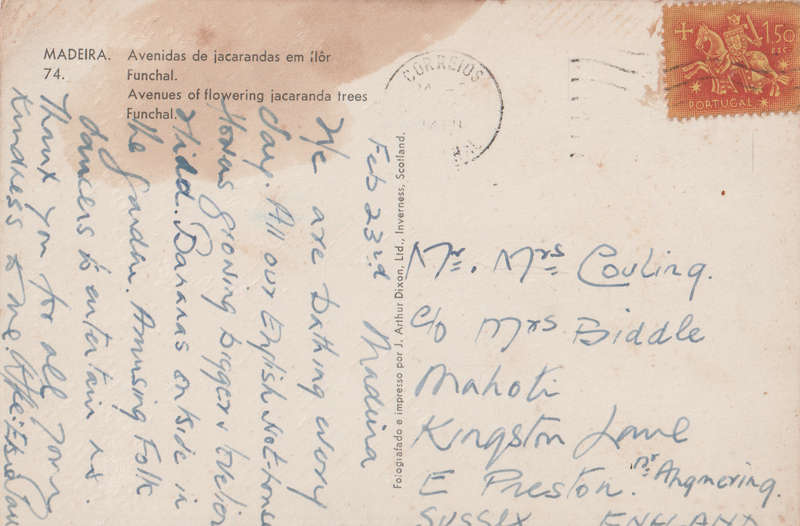 MADEIRA. Avenidas de jacarandas em flôr
74. Funchal.
Avenues of flowering jacaranda trees
Funchal.
Feb 23rd Madeira
We are bathing every
day. All our English
growing bigger &
Wild. Bananas outside in
the garden. Amusing Folk
dancers to entertain us.
Thank you for all your
kindness to me.
Fotografado e impresso por J. Arthur Dixon, Ltd., Inverness, Scotland.
CORREIOS
1$50
ESC.
PORTUGAL
Mr. Mrs Couling.
c/o Mrs Biddle
Mahoti
Kingston Lane
E Preston. nr Angmering.
SUSSEX ENGLAN